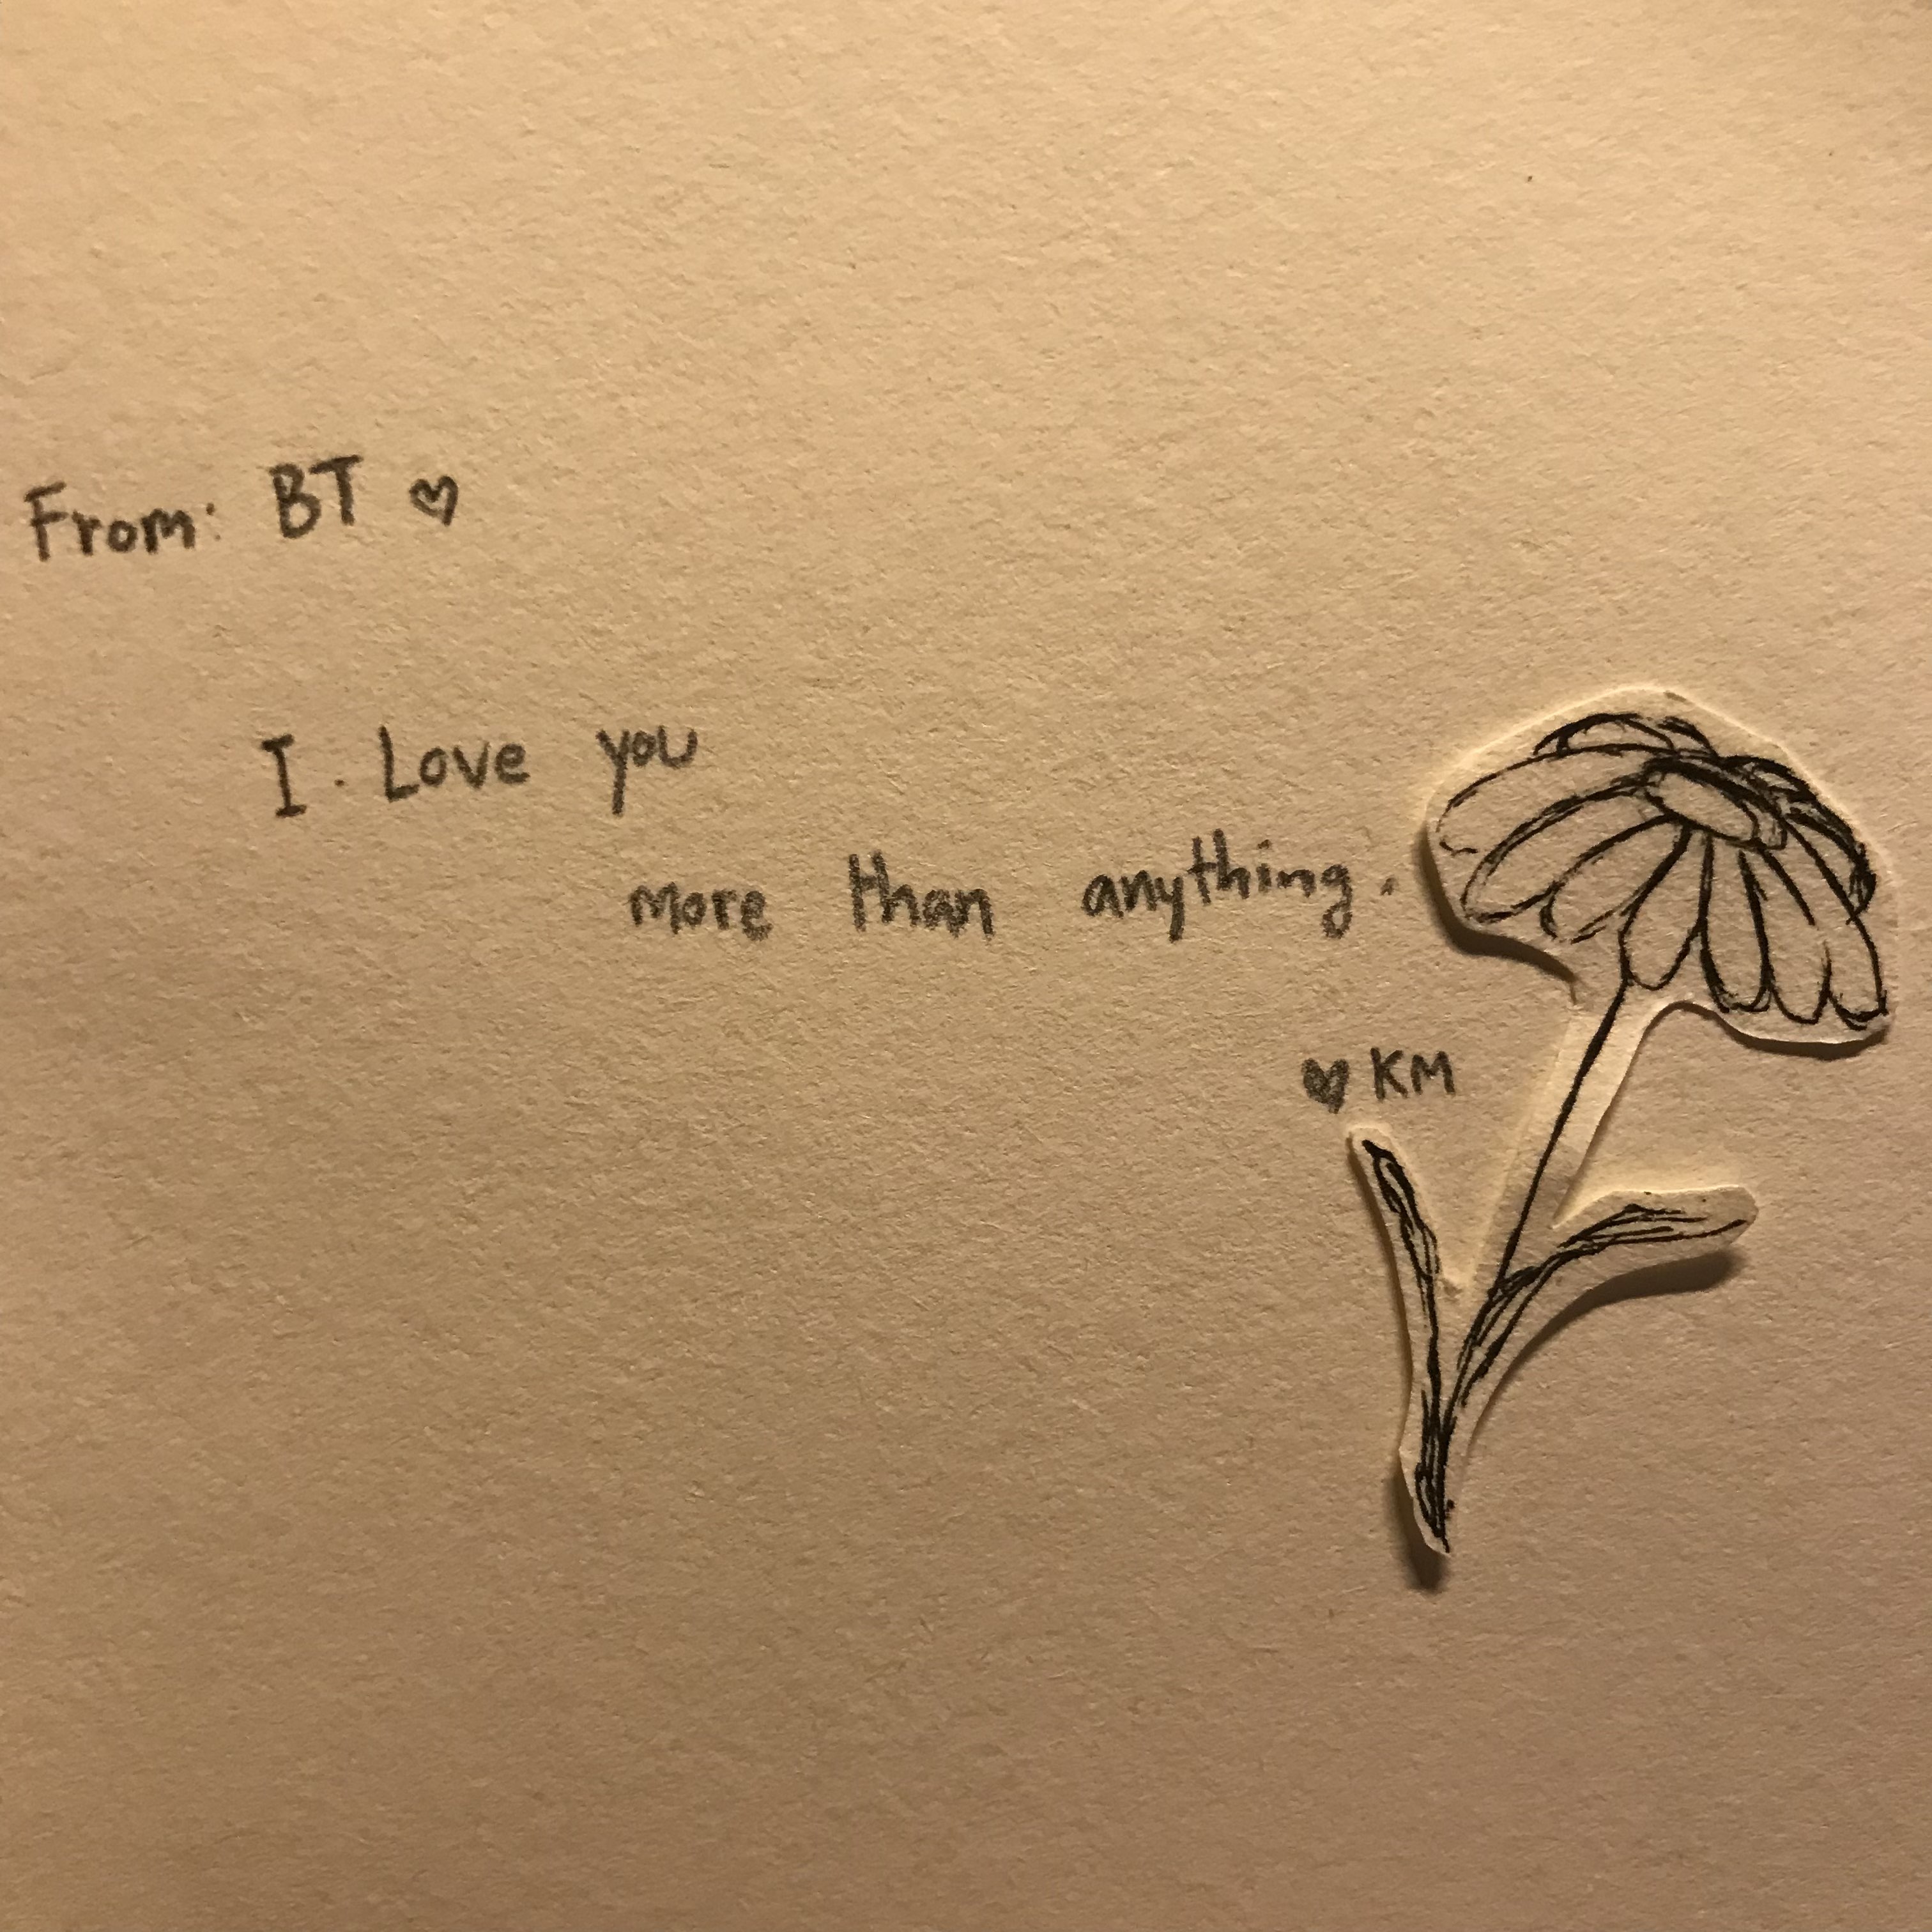 From: BT ♡
I. Love you
more than anything.
♥ KM